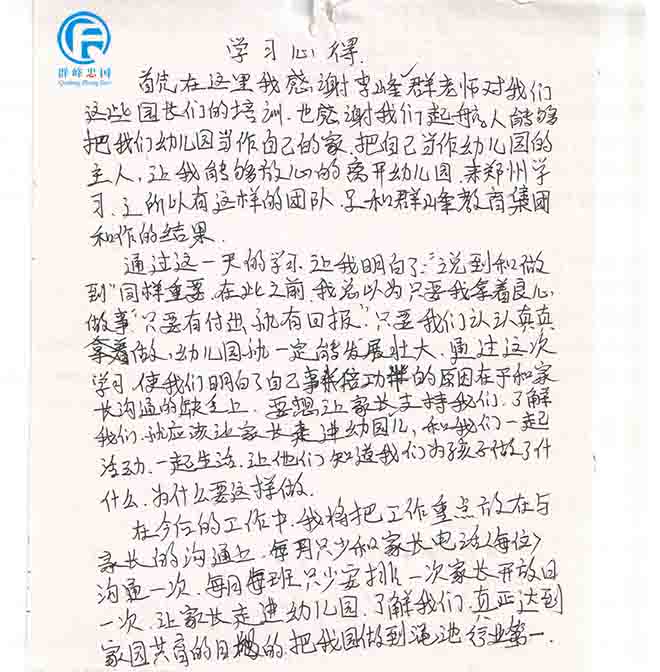 群峰忠国
Qunfeng Zhong Guo
学习心得.
首先在这里我感谢李峰群老师对我们
这些园长们的培训.也感谢我们起航人能够
把我们幼儿园当作自己的家.把自己当作幼儿园的
主人.让我能够放心的离开幼儿园.来郑州学
习.之所以有这样的团队.是和群峰教育集团
和作的结果.
通过这一天的学习.让我明白了:"说到和做
到"同样重要.在此之前.我总以为只要我拿着良心
做事"只要有付出.就有回报".只要我们认认真真
拿着做.幼儿园就一定能发展壮大.通过这次
学习.使我们明白了自己事倍功半的原因在于和家
长沟通的缺乏上.要想让家长支持我们.了解
我们.就应该让家长走进幼园儿,和我们一起
活动.一起生活.让他们知道我们为孩子做了什
什么.为什么要这样做.
在今后的工作中.我将把工作重点放在与
家长的沟通上.每月只少和家长电话(每位)
沟通一次.每月每班只少安排一次家长开放日
一次.让家长走进幼儿园.了解我们.真正达到
家园共育的目的.把我园做到渑池行业第一.